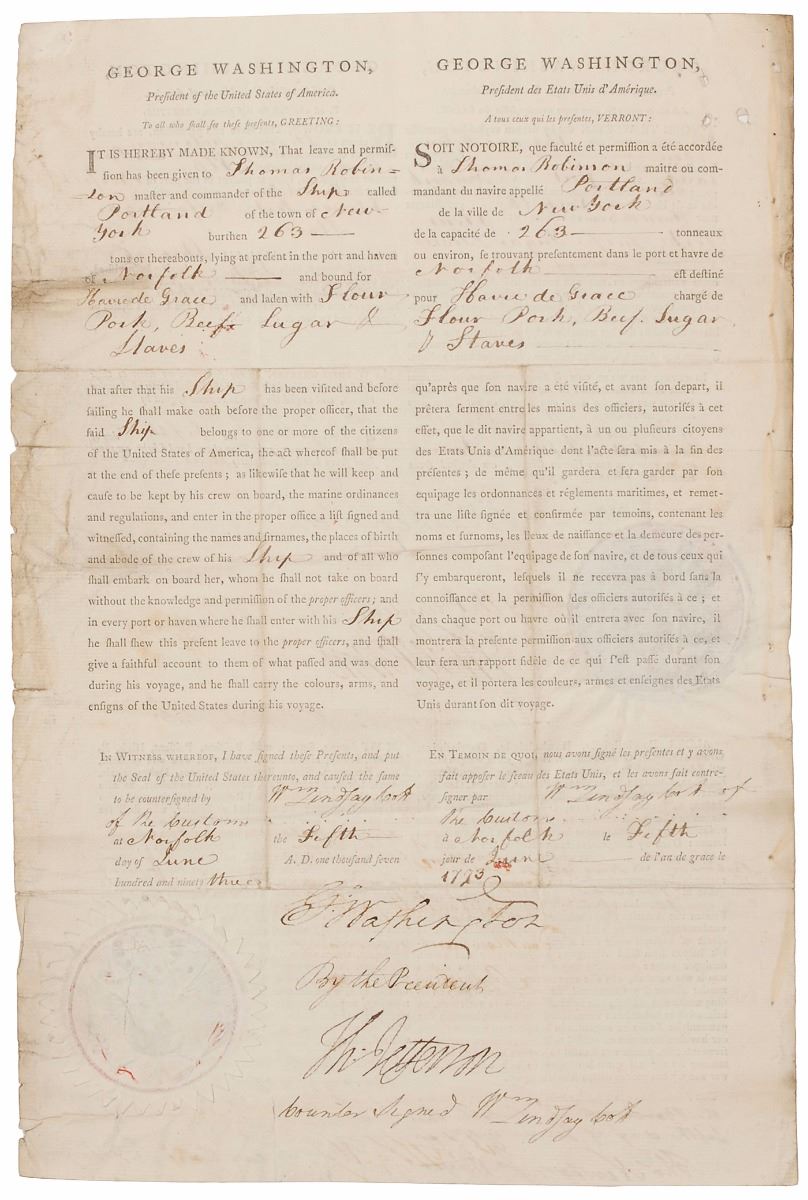 GEORGE WASHINGTON,
President of the United States of America.
To all who shall see these presents, GREETING:
IT IS HEREBY MADE KNOWN, That leave and permis-
sion has been given to Thomas Robin=
=son master and commander of the Ship called
Portland of the town of New-
York burthen 263
tons or thereabouts, lying at present in the port and haven
of Norfolk and bound for
Havre de Grace and laden with Flour
Pork, Beef, Sugar &
Staves
that after that his Ship has been visited and before
sailing he shall make oath before the proper officer, that the
said Ship belongs to one or more of the citizens
of the United States of America, the act whereof shall be put
at the end of these presents; as likewise that he will keep and
cause to be kept by his crew on board, the marine ordinances
and regulations, and enter in the proper office a list signed and
witnessed, containing the names and sirnames, the places of birth
and abode of the crew of his Ship and of all who
shall embark on board her, whom he shall not take on board
without the knowledge and permission of the proper officers; and
in every port or haven where he shall enter with his Ship
he shall shew this present leave to the proper officers, and shall
give a faithful account to them of what passed and was done
during his voyage, and he shall carry the colours, arms, and
ensigns of the United States during his voyage.
IN WITNESS WHEREOF, I have signed these Presents, and put
the Seal of the United States thereunto, and caused the same
to be countersigned by Wm Lindsay Colt
of the Customs
at Norfolk the Fifth
day of June A. D. one thousand seven
hundred and ninety three
GEORGE WASHINGTON,
President des Etats Unis d'Amérique.
A tous ceux qui les presentes, VERRONT:
SOIT NOTOIRE, que faculté et permission a été accordée
à Thomas Robinson maitre ou com-
mandant du navire appellé Portland
de la ville de New York
de la capacité de 263 tonneaux
ou environ, se trouvant presentement dans le port et havre de
Norfolk est destiné
pour Havre de Grace chargé de
Flour Pork, Beef, Sugar
& Staves
qu'après que son navire a été visité, et avant son depart, il
prêtera serment entre les mains des officiers, autorisés à cet
effet, que le dit navire appartient, à un ou plusieurs citoyens
des Etats Unis d'Amérique dont l'acte sera mis à la fin des
présentes; de même qu'il gardera et fera garder par son
equipage les ordonnances et réglements maritimes, et remet-
tra une liste signée et confirmée par temoins, contenant les
noms et surnoms, les lieux de naissance et la demeure des per-
sonnes composant l'equipage de son navire, et de tous ceux qui
s'y embarqueront, lesquels il ne recevra pas à bord sans la
connoissance et la permission des officiers autorisés à ce; et
dans chaque port ou havre où il entrera avec son navire, il
montrera la presente permission aux officiers autorisés à ce, et
leur fera un rapport fidèle de ce qui s'est passé durant son
voyage, et il portera les couleurs, armes et enseignes des Etats
Unis durant son dit voyage.
EN TEMOIN DE QUOI, nous avons signé les presentes et y avons
fait apposer le sceau des Etats Unis, et les avons fait contre-
signer par Wm Lindsay Colt of
the Customs
à Norfolk le Fifth
jour de June de l'an de grace le
1793
Go: Washington
By the President
Th: Jefferson
Counter Signed Wm Lindsay Colt